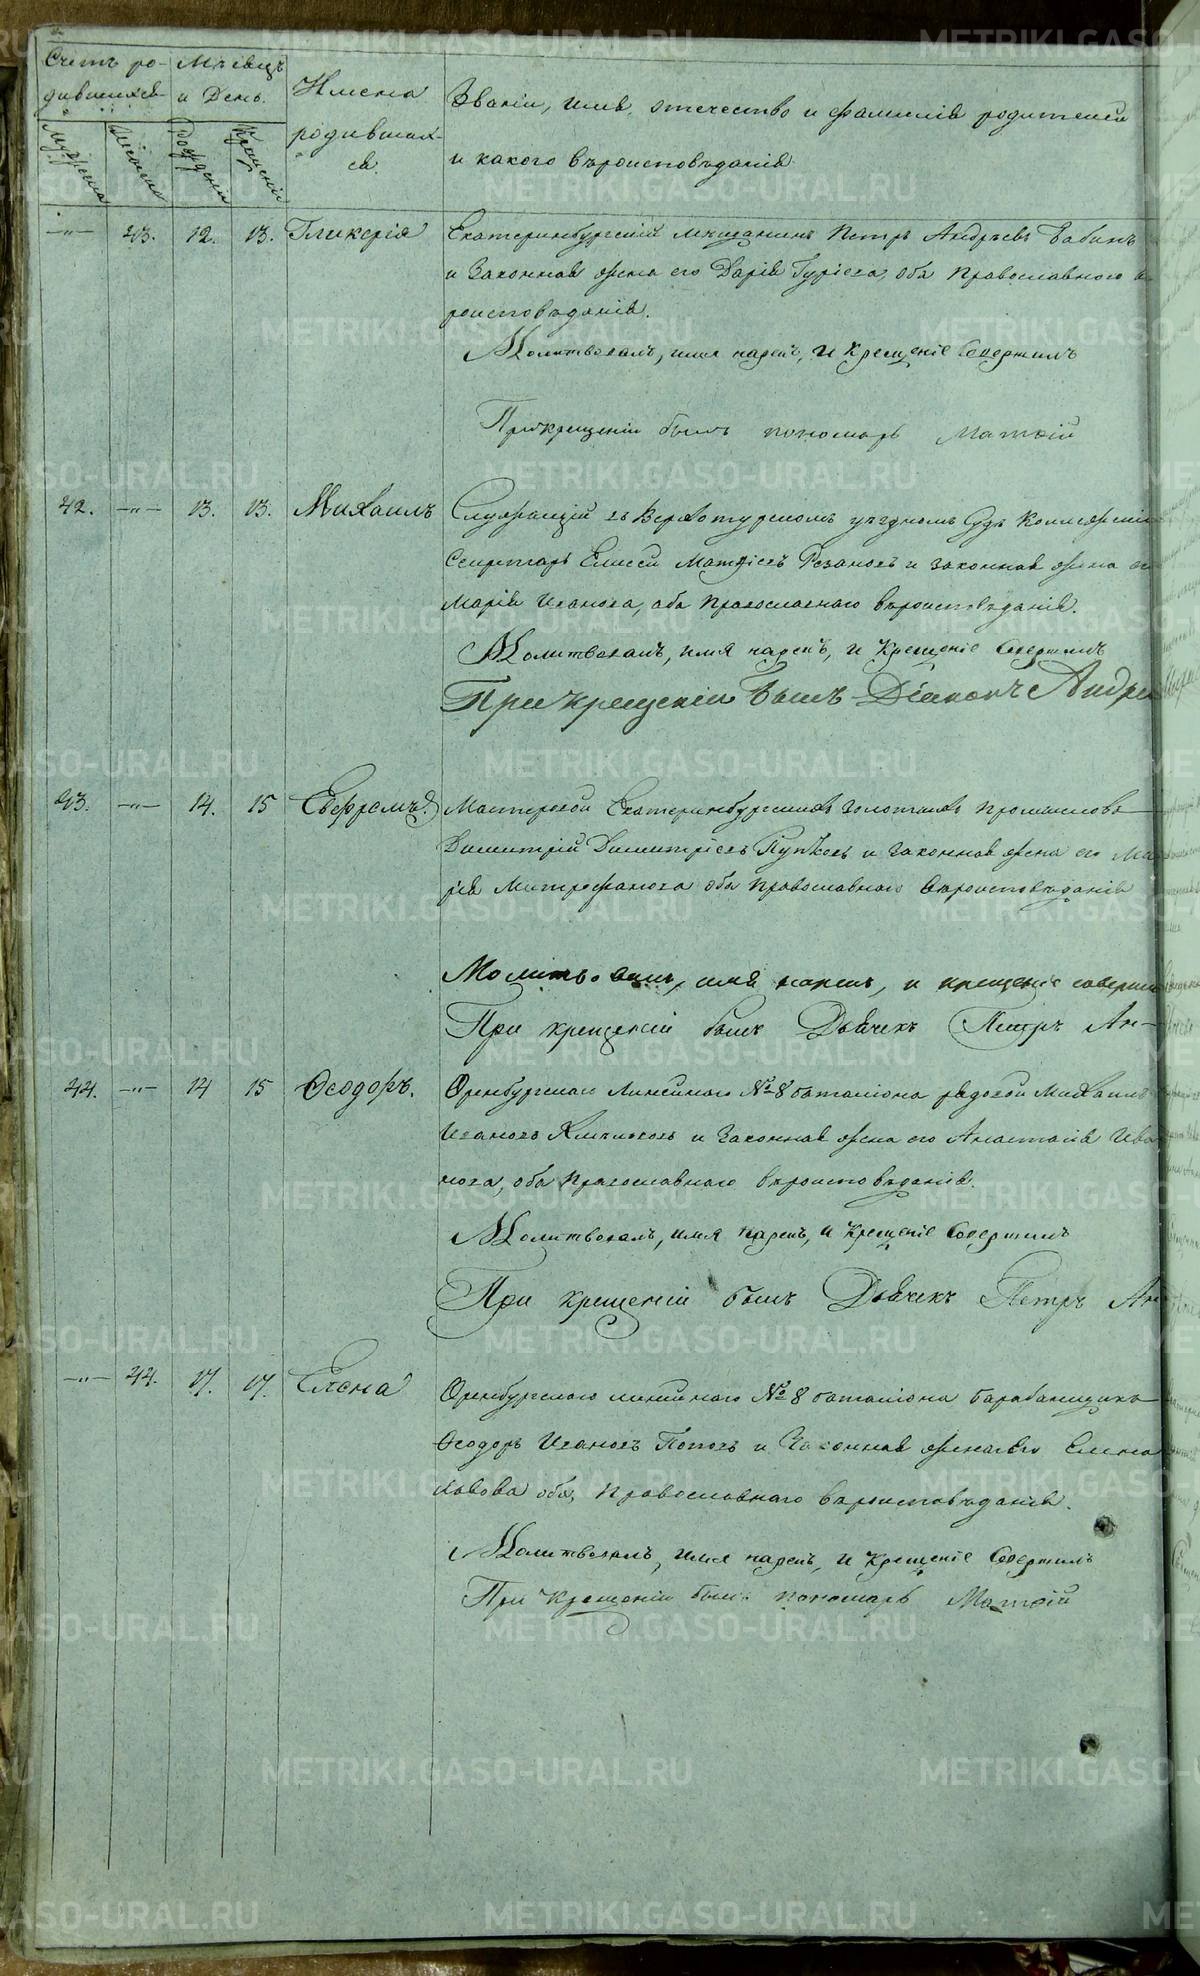 Счетъ ро- Мѣсяцъ
дившихся и День.
Имена
родивших-
ся.
Званіе, имя, отечество и фамилія родителей
и какого вѣроисповѣданія.
Мужеска Женска Рожденія Крещенія
—"— 43. 12. 13. Гликерія Екатеринбургскій мѣщанинъ Петръ Андреевъ Бабинъ
и законная жена его Дарія Гуріева, оба Православнаго вѣ
роисповѣданія.
Молитвовалъ, имя нарекъ, и Крещеніе Совершилъ
При крещеніи былъ пономарь Матѳій
42. —"— 13. 13. Михаилъ Служащій въ Верхотурскомъ уѣздномъ Судѣ Коллежскій
Секретарь Елисей Матѳіевъ Резановъ и законная жена его
Марія Иванова, оба Православнаго вѣроисповѣданія.
Молитвовалъ, имя нарекъ, и Крещеніе Совершилъ
При крещеніи былъ Діаконъ Андрей
43. —"— 14. 15 Мастеровой Екатеринбургскихъ золотыхъ промысловъ
Димитрій Димитріевъ и законная жена его Ма
рія Митрофанова оба Православнаго вѣроисповѣданія
Молитвовалъ, имя нарекъ, и крещеніе соверши
При крещеніи былъ Дьячекъ Петръ Ан-
44. —"— 14 15 Ѳеодоръ. Оренбургскаго Линейнаго № 8 баталіона рядовой Михаилъ
Ивановъ и законная жена его Анастасія Ива
нова, оба Православнаго вѣроисповѣданія.
Молитвовалъ, имя нарекъ, и Крещеніе Совершилъ
При крещеніи былъ Дьячекъ Петръ Ан
—"— 44. 17. 17. Елена Оренбургскаго линейнаго № 8 баталіона барабанщикъ
Ѳеодоръ Ивановъ Поповъ и Законная жена его Елена
оба, Православнаго вѣроисповѣданія.
Молитвовалъ, имя нарекъ, и Крещеніе Совершилъ
При Крещеніи былъ пономарь Матѳій
METRIKI.GASO-URAL.RU